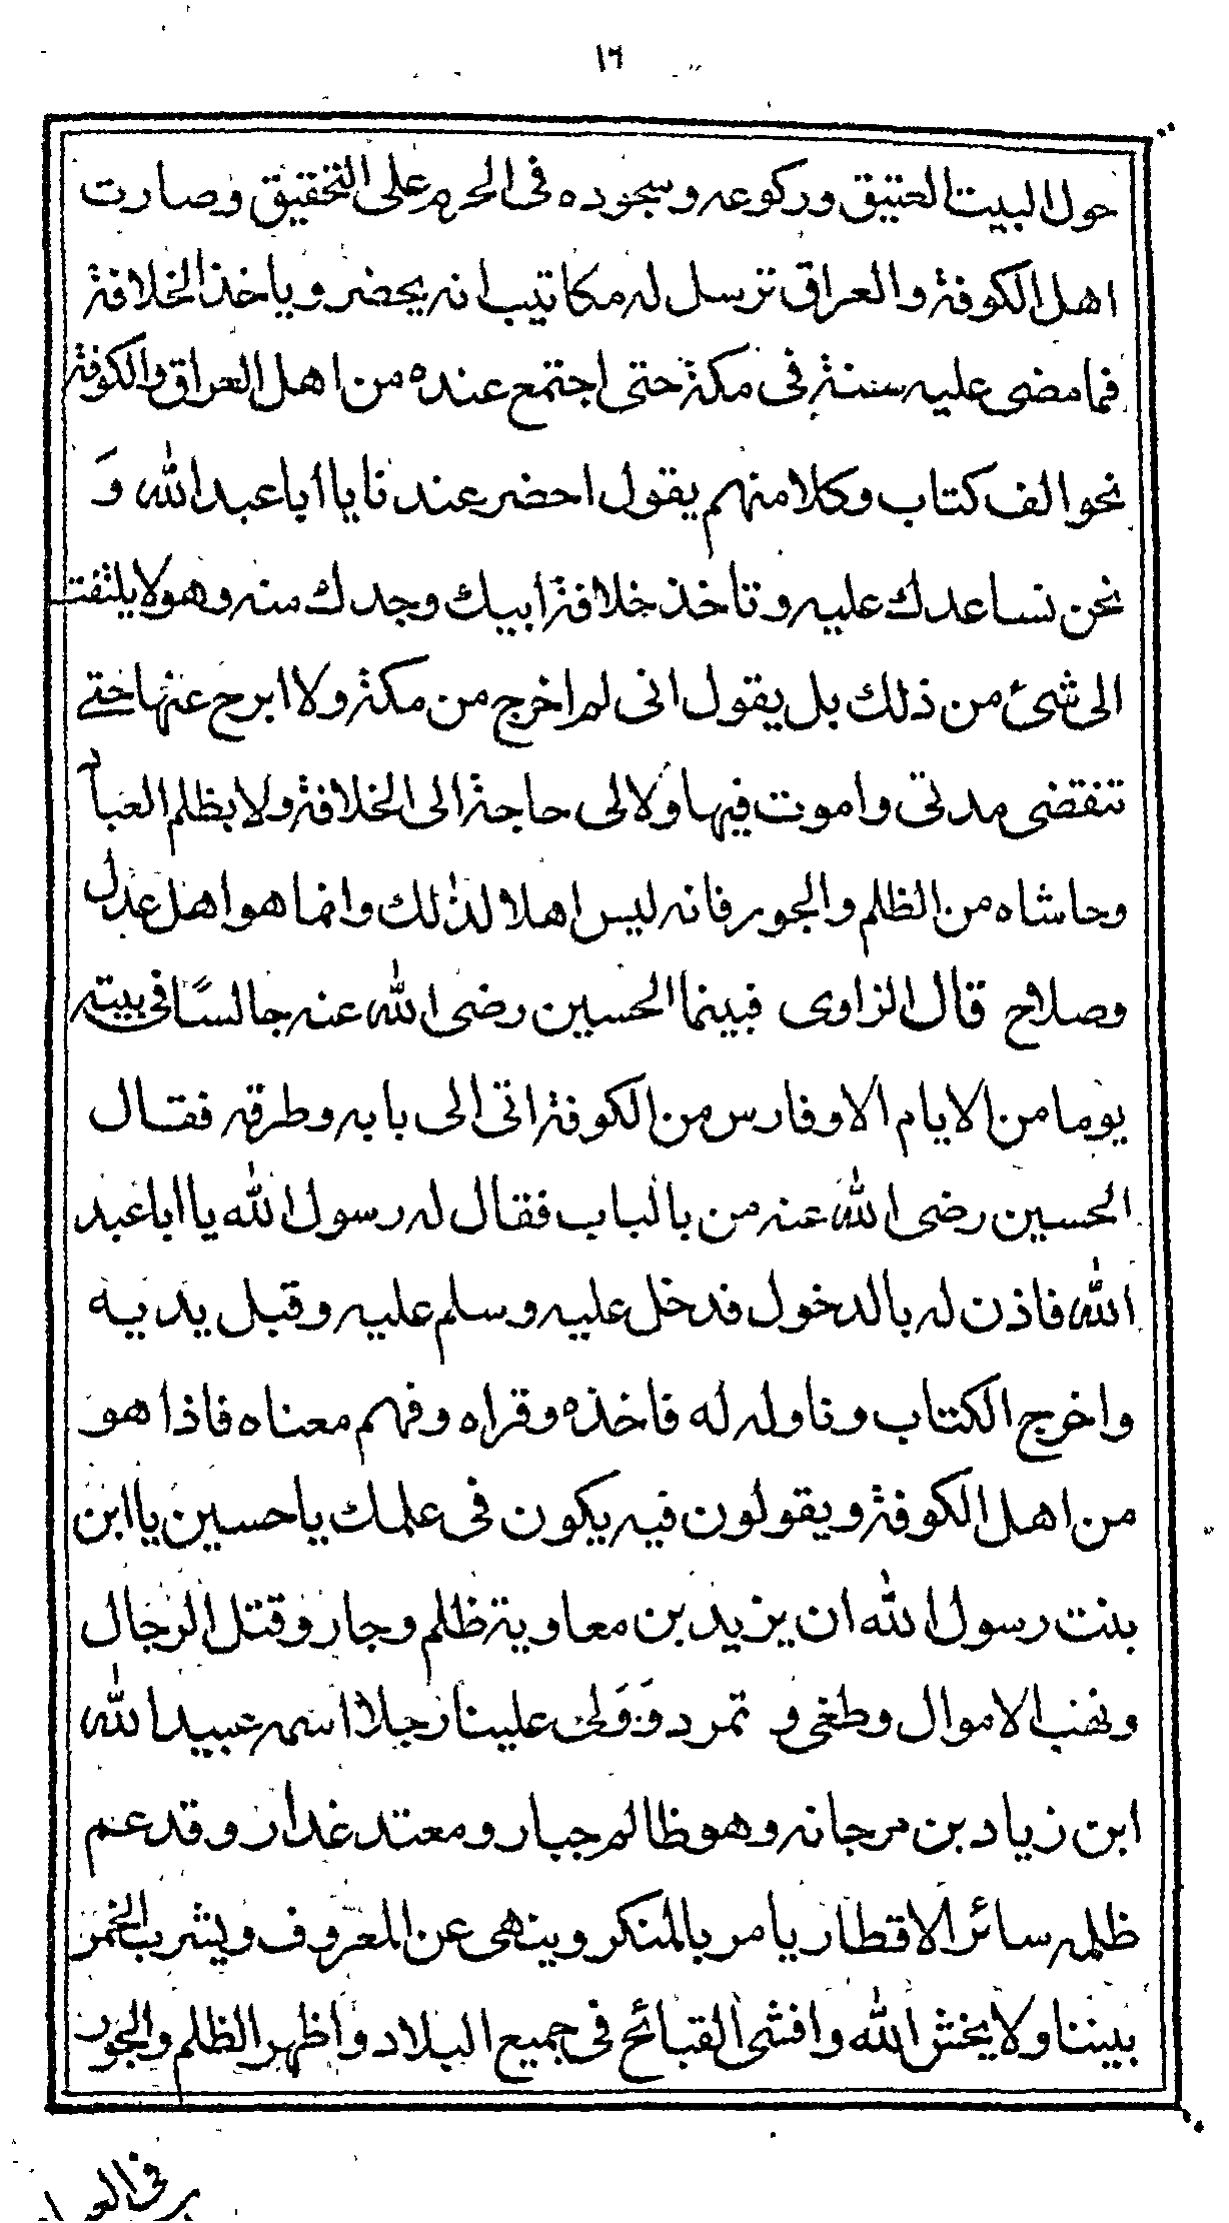 ١٦
حول البيت العتيق وركوعه وسجوده فى الحرم على التحقيق وصارت
اهل الكوفة والعراق ترسل له مكاتيب انه يحضر وياخذ الخلافة
فما مضى عليه سنة فى مكة حتى اجتمع عنده من اهل العراق والكوفة
نحو الف كتاب وكلا منهم يقول احضر عندنا يا أبا عبد الله وَ
نحن نساعدك عليه وتاخذ خلافة ابيك وجدك منه وهو لا يلتفت
الى شئ من ذلك بل يقول انى لم اخرج من مكة ولا ابرح عنها حتى
تنقضى مدتى واموت فيها ولا لى حاجة الى الخلافة ولا بظلم العباد
وحاشاه من الظلم والجور فانه ليس اهلا لذلك وانما هو اهل عدل
وصلاح قال الراوى فبينما الحسين رضى الله عنه جالسًا فى بيته
يوما من الايام الا وفارس من الكوفة اتى الى بابه وطرقه فقال
الحسين رضى الله عنه من بالباب فقال له رسول الله يا ابا عبد
الله فاذن له بالدخول فدخل عليه وسلم عليه وقبل يديه
واخرج الكتاب وناوله له فاخذه وقراه وفهم معناه فاذا هو
من اهل الكوفة ويقولون فيه يكون فى علمك يا حسين يا ابن
بنت رسول الله ان يزيد بن معاوية ظلم وجار وقتل الرجال
ونهب الاموال وطغى و تمرد وَوَلى علينا رجلا اسمه عبيد الله
ابن زياد بن مرجانه وهو ظالم جبار ومعتد غدار وقد عم
ظلمه سائر الاقطار يامر بالمنكر وينهى عن المعروف ويشرب الخمر
بيننا ولا يخش الله وافشى القبائح فى جميع البلاد واظهر الظلم والجور